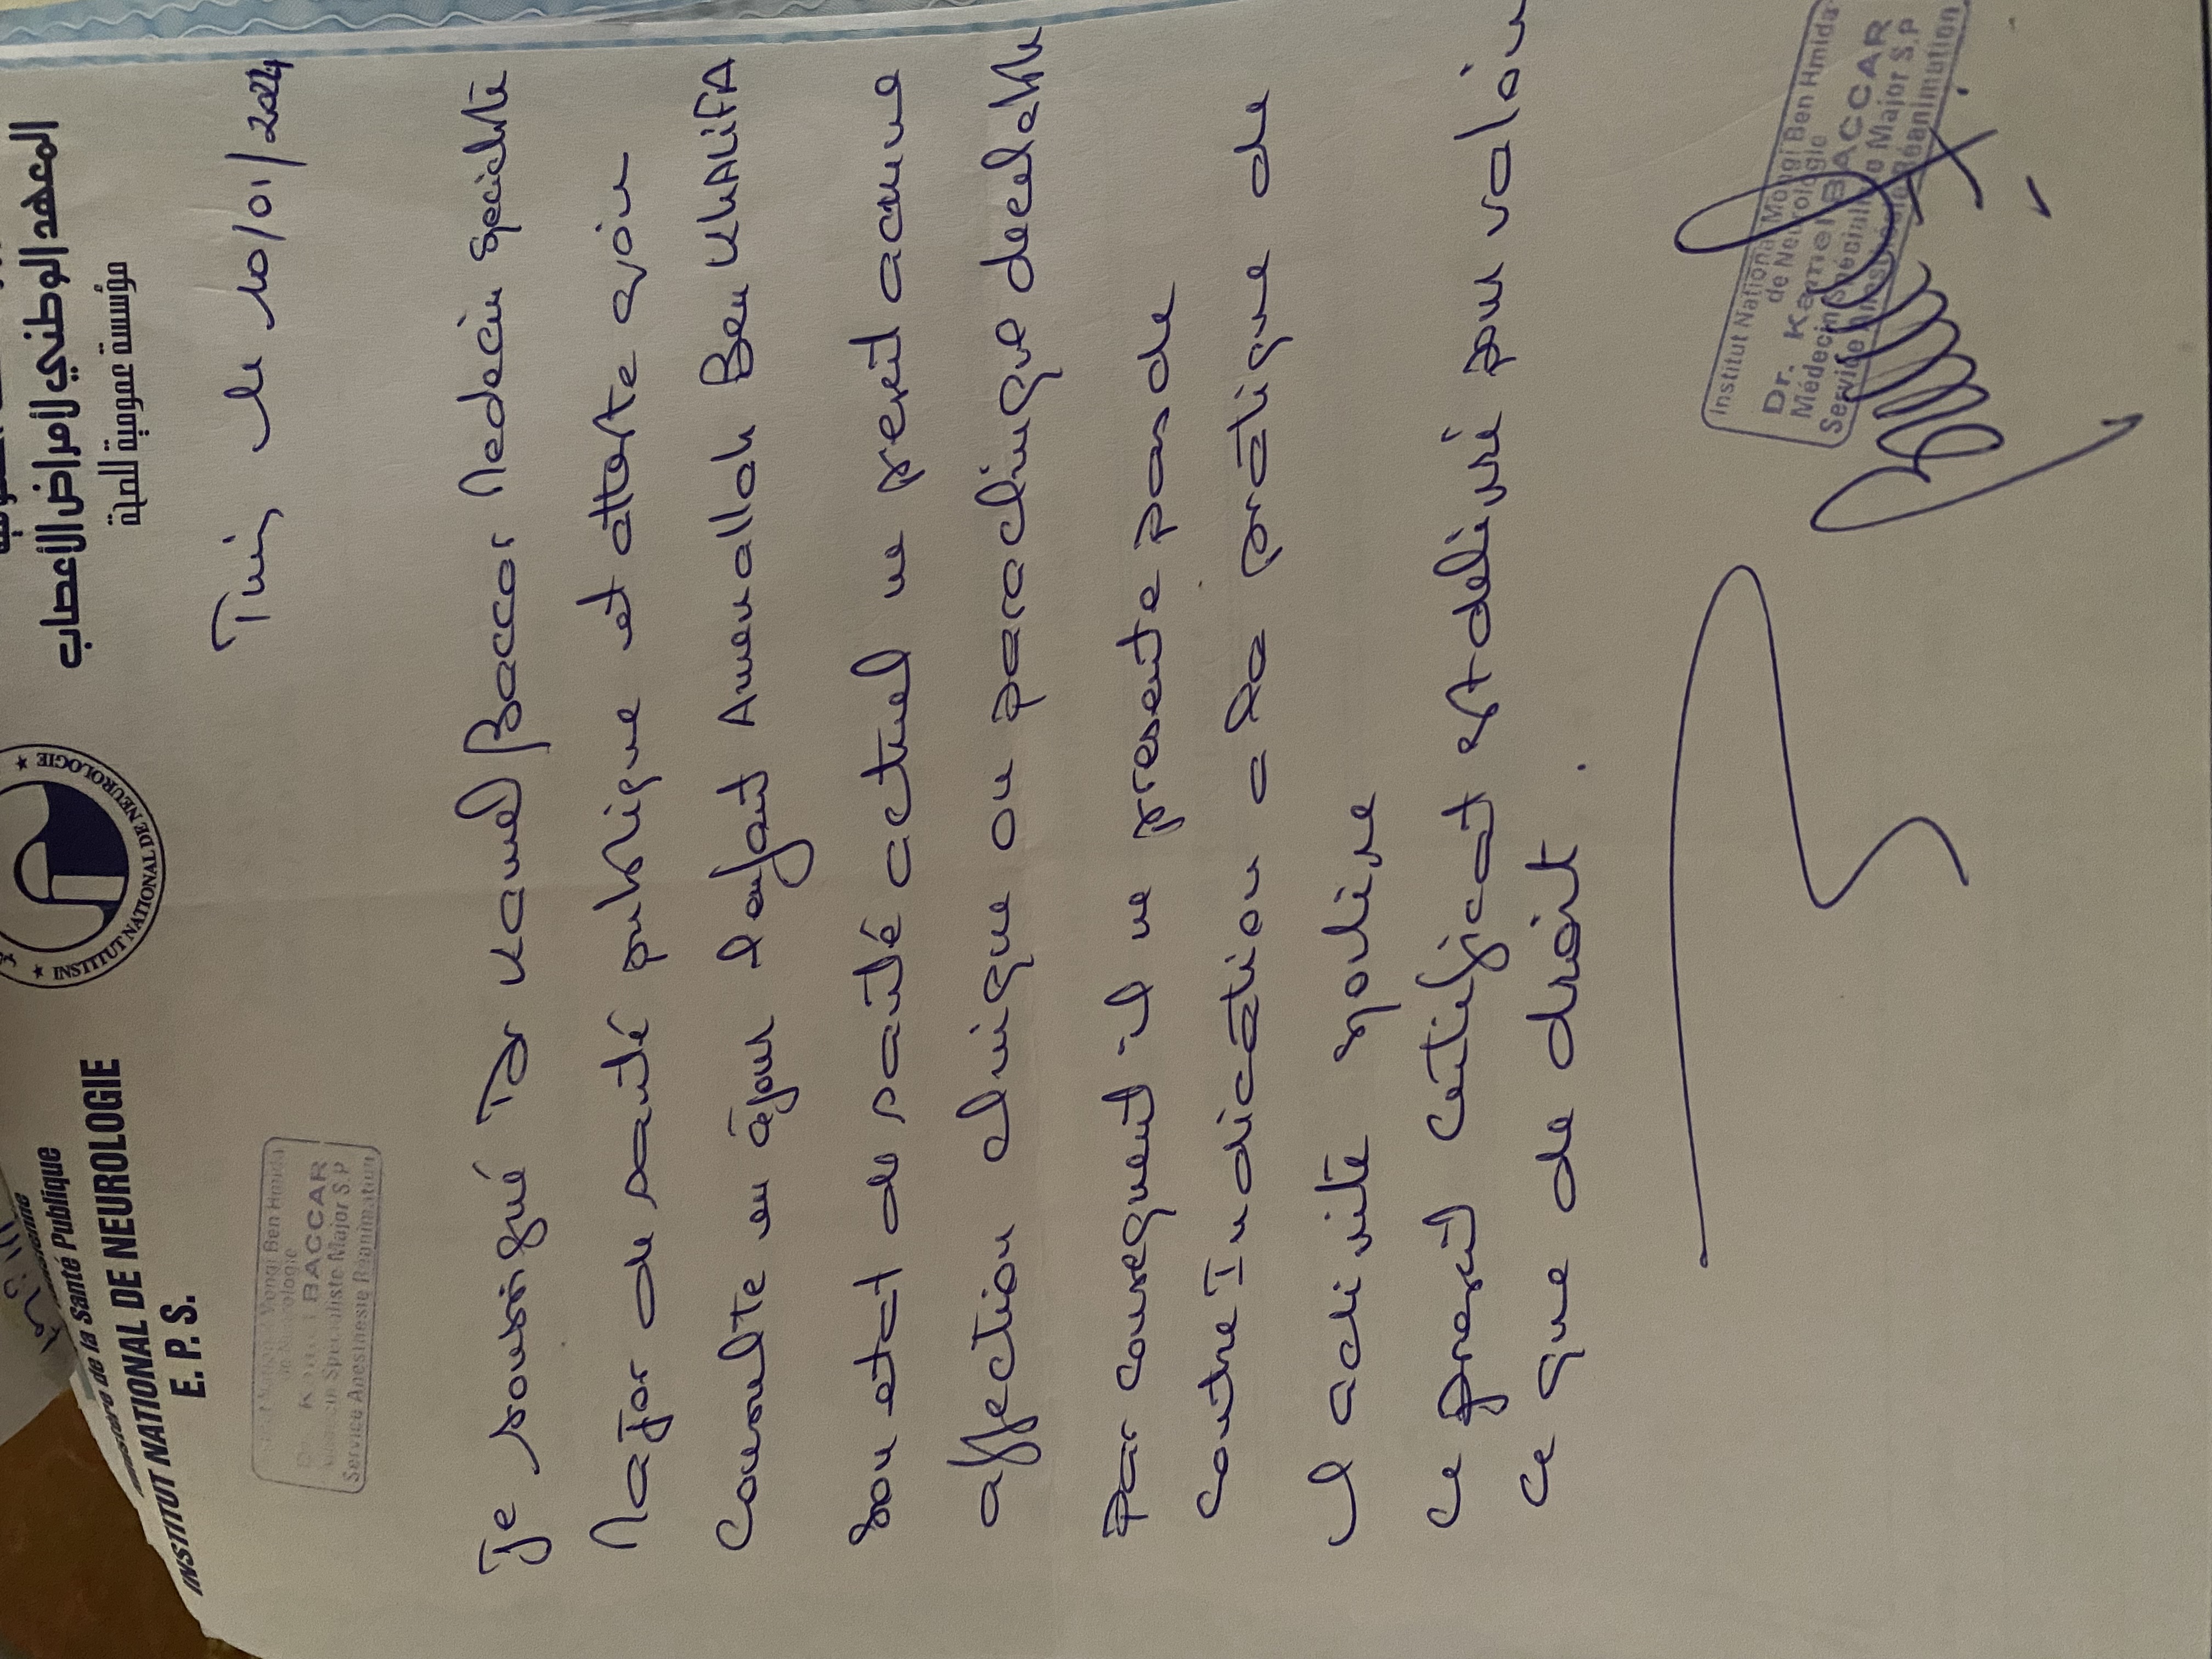 de la Santé Publique
INSTITUT NATIONAL DE NEUROLOGIE
E. P. S.
★ INSTITUT NATIONAL DE NEUROLOGIE ★
المعهد الوطني لأمراض الأعصاب
مؤسسة عمومية للصحة
Tunis le 10/01/2024
Mongi Ben Hmida
BACCAR
Spécialiste Major S.P
Service Anesthésie Réanimation
Je soussigné Dr Kamel Baccar Medecin specialiste
Major de santé publique et atteste avoir
Consulte en ce jour l'enfant Amenallah Ben KHALIFA
Son etat de santé actuel ne presente aucune
affection clinique ou paraclinique decelable
Par consequent il ne presente pas de
Contre Indication a la pratique de
l activite sportive
Ce present Certificat est delivré pour valoir
ce que de droit.
Institut National Mongi Ben Hmida
de Neurologie
Dr. Kamel BACCAR
Médecin Spécialiste Major S.P
Service Anesthésie Réanimation